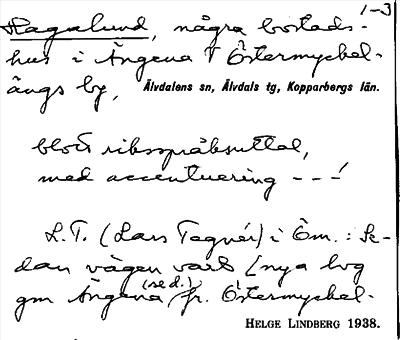 1-3
Hagalund, några bostads-
hus i Ängena V Östermyckel-
ängs by, Älvdalens sn, Älvdals tg, Kopparbergs län.
blott riksspråksuttal,
med accentuering - - -!
L.T. (Lars Tegnér) i Öm.: Se-
dan vägen varit (nya lvg
gm Ängena (se d.) fr. Östermyckel-
HELGE LINDBERG 1938.